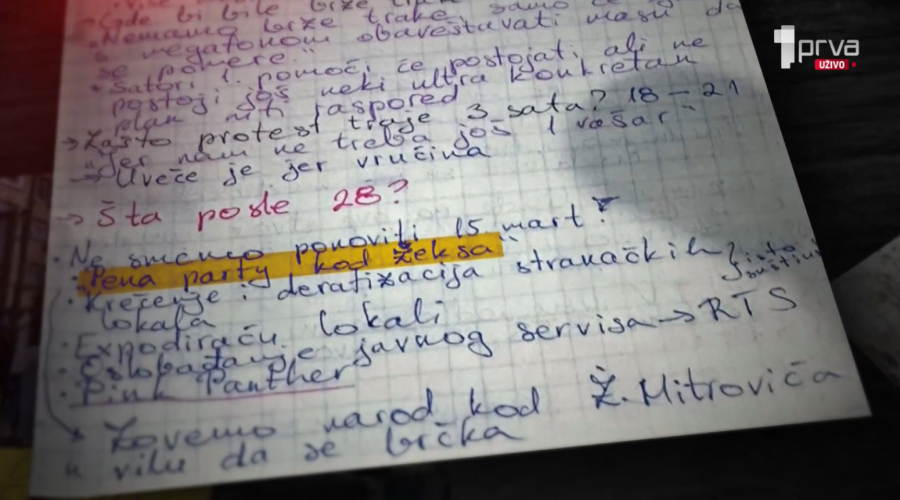 Gde bi bile brže trake
• Nemamo brže trake samo će
s megafonom obaveštavati masu da
se pomere"
• Šatori 1. pomoći će postojati ali ne
postoji još neki ultra konkretan
plan niti raspored
→ Zašto protest traje 3 sata? 18-21
"Jer nam ne treba još 1 vašar"
→ Uveče je jer vrućina
→ Šta posle 28?
• Ne smemo ponoviti 15 mart!
• "Pena party kod Žeksa"
• Krečenje i deratizacija stranačkih
lokala
} isto
suštini
• Expodiraću lokali
• Oslobađanje javnog servisa → RTS
• Pink Panther
→ Zovemo narod kod Ž. Mitrovića
u vilu da se brčka
1prva
UŽIVO